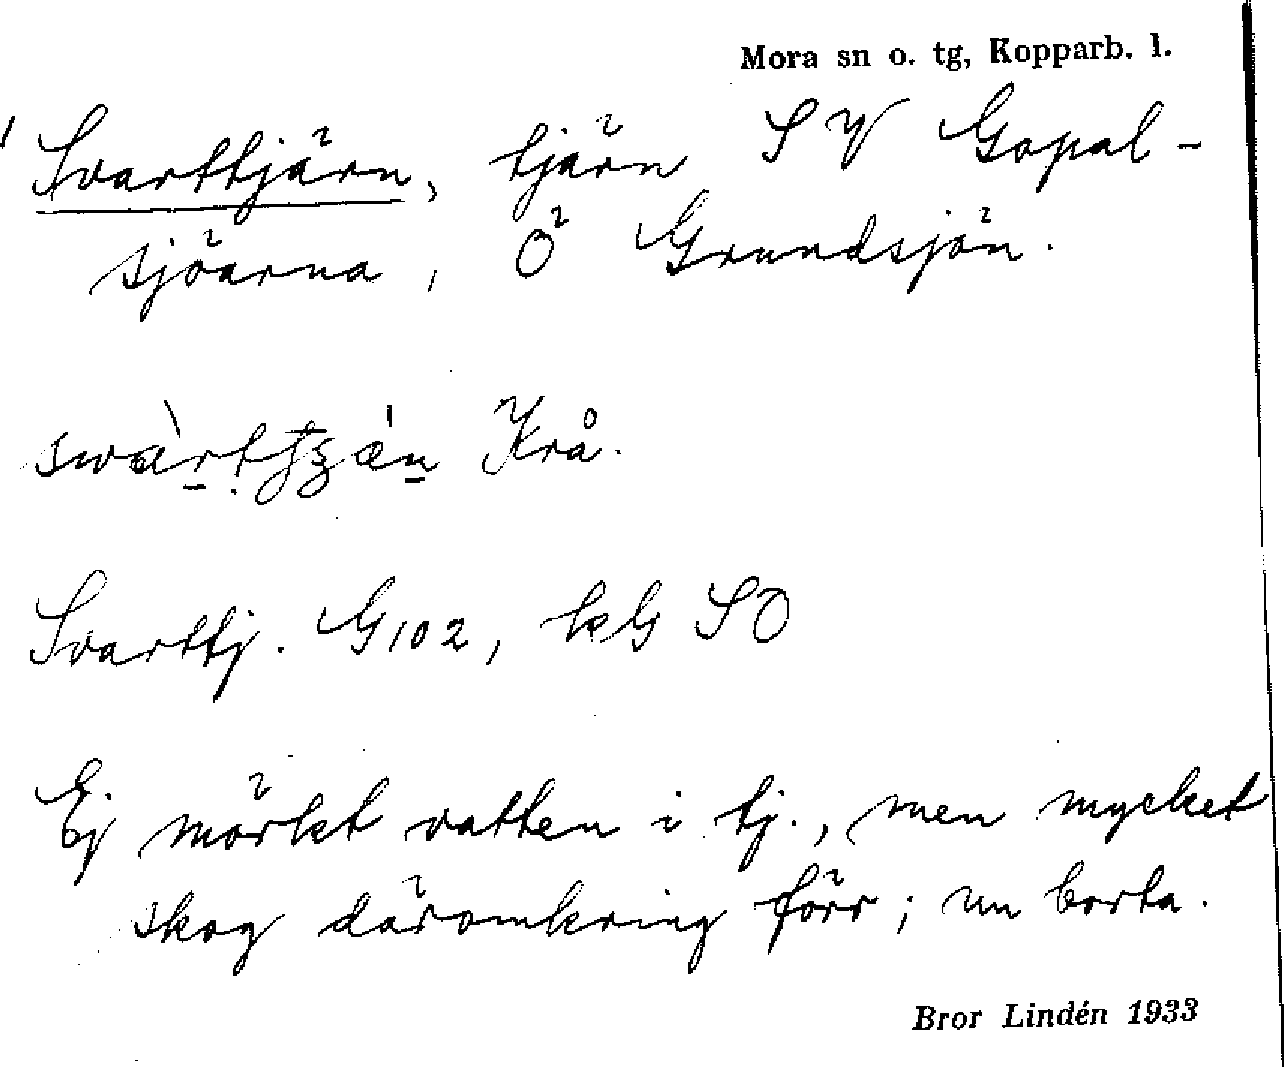 Mora sn o. tg, Kopparb. l.
Svarttjärn, tjärn SV Gopal-
sjöarna, Ö Grundsjön.
Krå.
Svarttj. G102, kG SO
Ej mörkt vatten i tj., men mycket
skog däromkring förr; nu borta.
Bror Lindén 1933